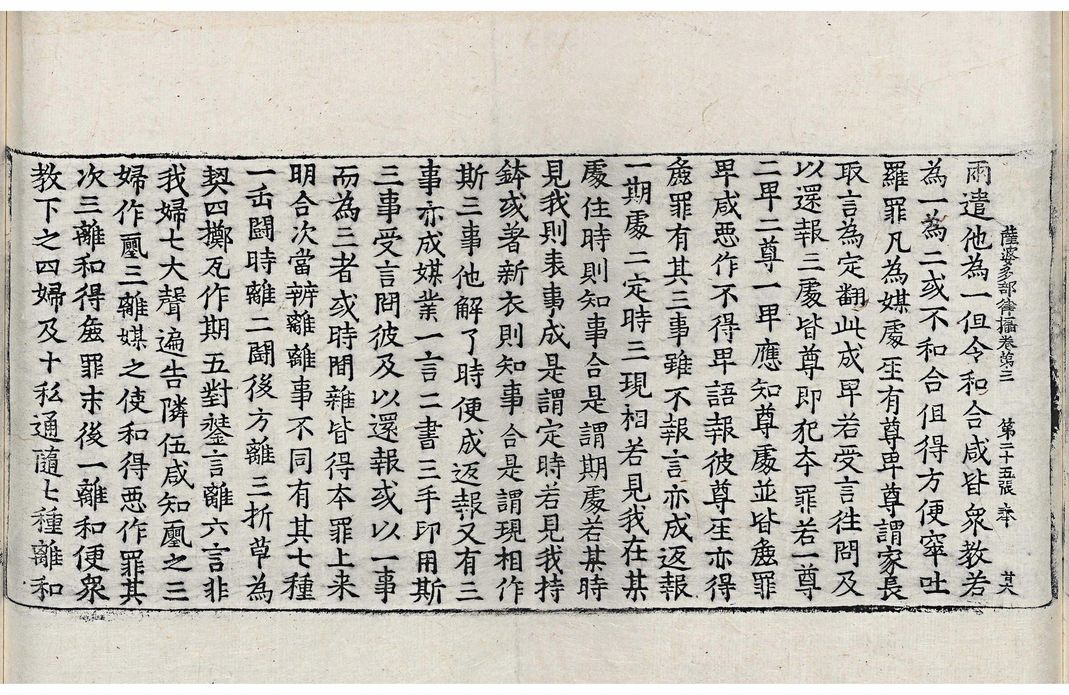 薩婆多部律攝卷第三　第二十五張　恭　其
兩遣他為一但令和合咸皆衆教若
為一為二或不和合但得方便窣吐
羅罪凡為媒處𤯔有尊卑尊謂家長
取言為定翻此成卑若受言往問及
以還報三處皆尊即犯夲罪若一尊
二卑二尊一卑應知尊處並皆麁罪
卑咸惡作不得卑語報彼尊𤯔亦得
麁罪有其三事雖不報言亦成返報
一期處二定時三現相若見我在某
處住時則知事合是謂期處若某時
見我則表事成是謂定時若見我持
鉢或著新衣則知事合是謂現相作
斯三事他解了時便成返報又有三
事亦成媒業一言二書三手印用斯
三事受言問彼及以還報或以一事
而為三者或時間雜皆得夲罪上来
明合次當辨離離事不同有其七種
一正鬪時離二鬪後方離三折草為
契四擲瓦作期五對證言離六言非
我婦七大聲遍告隣伍咸知壓之三
婦作壓三離媒之使和得惡作罪其
次三離和得麁罪末後一離和便衆
教下之四婦及十私通隨七種離和